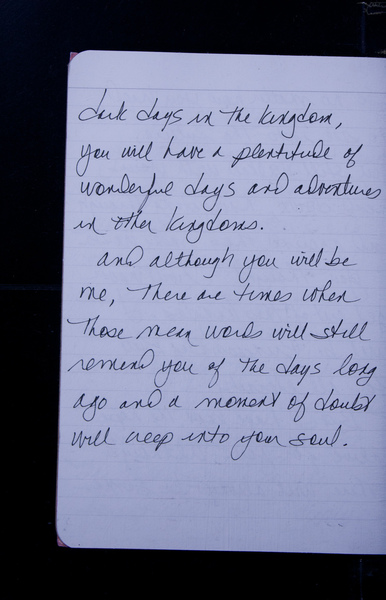 dark days in the kingdom,
you will have a plentitude of
wonderful days and adventures
in other kingdoms.
and although you will be
me, there are times when
those mean words will still
remind you of the days long
ago and a moment of doubt
will creep into your soul.